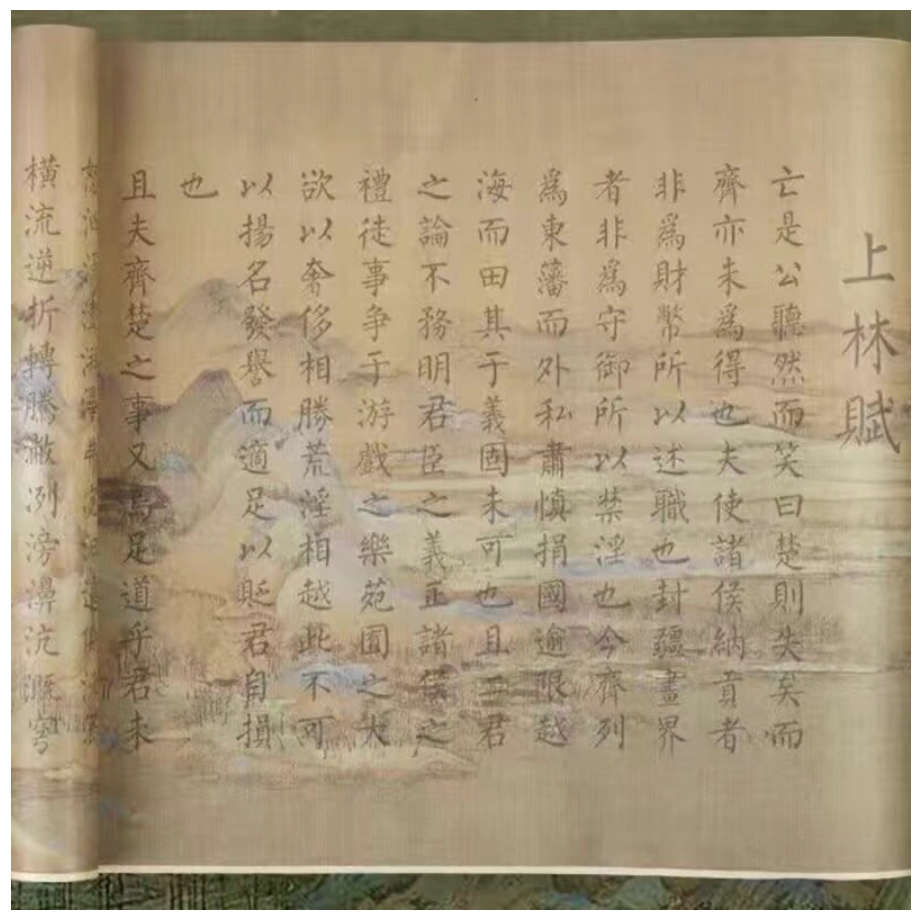 上林賦
亡是公聽然而笑曰楚則失矣而
齊亦未爲得也夫使諸侯納貢者
非爲財幣所以述職也封疆畫界
者非爲守御所以禁淫也今齊列
爲東藩而外私肅慎捐國逾限越
海而田其于義固未可也且二君
之論不務明君臣之義正諸侯之
禮徒事争于游戲之樂苑囿之大
欲以奢侈相勝荒淫相越此不可
以揚名發譽而適足以貶君自損
也
且夫齊楚之事又烏足道乎君未
橫流逆折轉騰潎洌滂濞沆溉穹